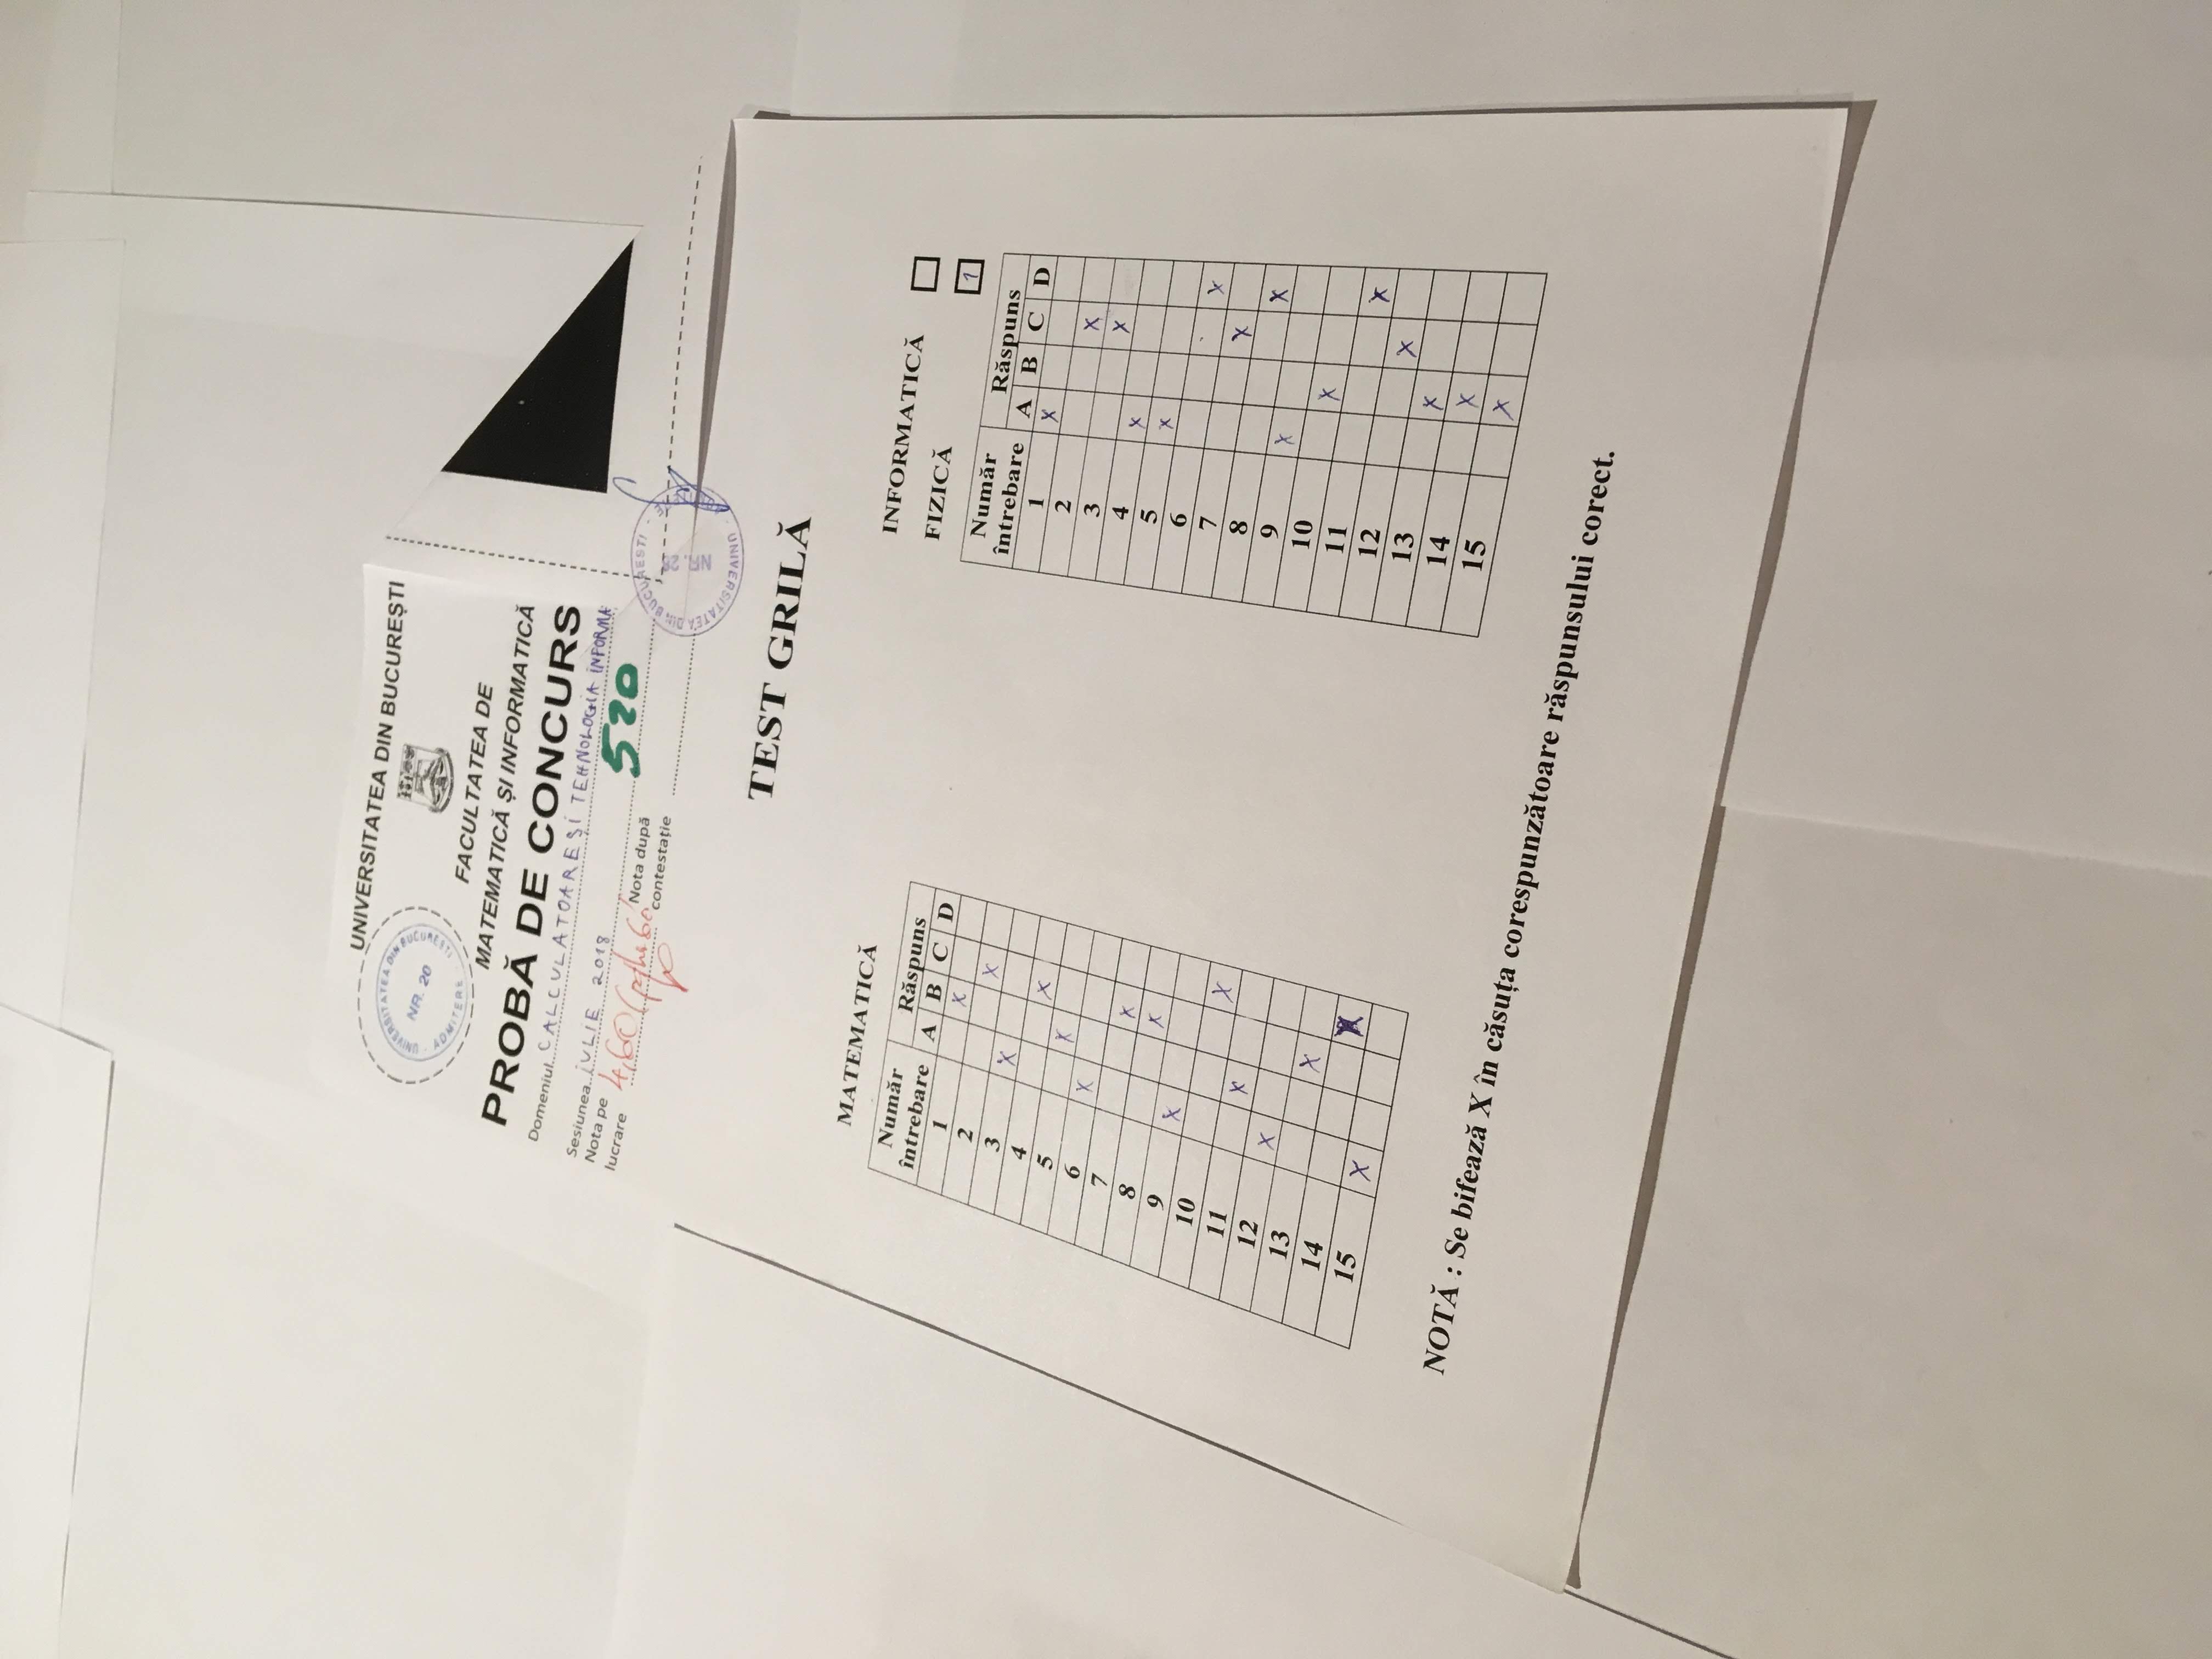 UNIVERSITATEA DIN BUCUREȘTI
UNIVERSITATEA DIN BUCUREȘTI
NR. 20
ADMITERE
FACULTATEA DE
MATEMATICĂ ȘI INFORMATICĂ
PROBĂ DE CONCURS
Domeniul CALCULATOARE ȘI TEHNOLOGIA INFORMA
Sesiunea IULIE 2018
520
Nota pe lucrare 4,60
Nota după contestație
UNIVERSITATEA DIN BUCUREȘTI
NR. 26
TEST GRILĂ
MATEMATICĂ
Număr întrebare Răspuns
A B C D
1 X
2 X
3 X
4 X
5 X
6 X
7 X
8 X
9 X
10 X
11 X
12 X
13 X
14 X
15 X
INFORMATICĂ
FIZICĂ 1
Număr întrebare Răspuns
A B C D
1 X
2 X
3 X
4 X
5 X
6 X
7 X
8 X
9 X
10 X
11 X
12 X
13 X
14 X
15 X
NOTĂ : Se bifează X în căsuța corespunzătoare răspunsului corect.